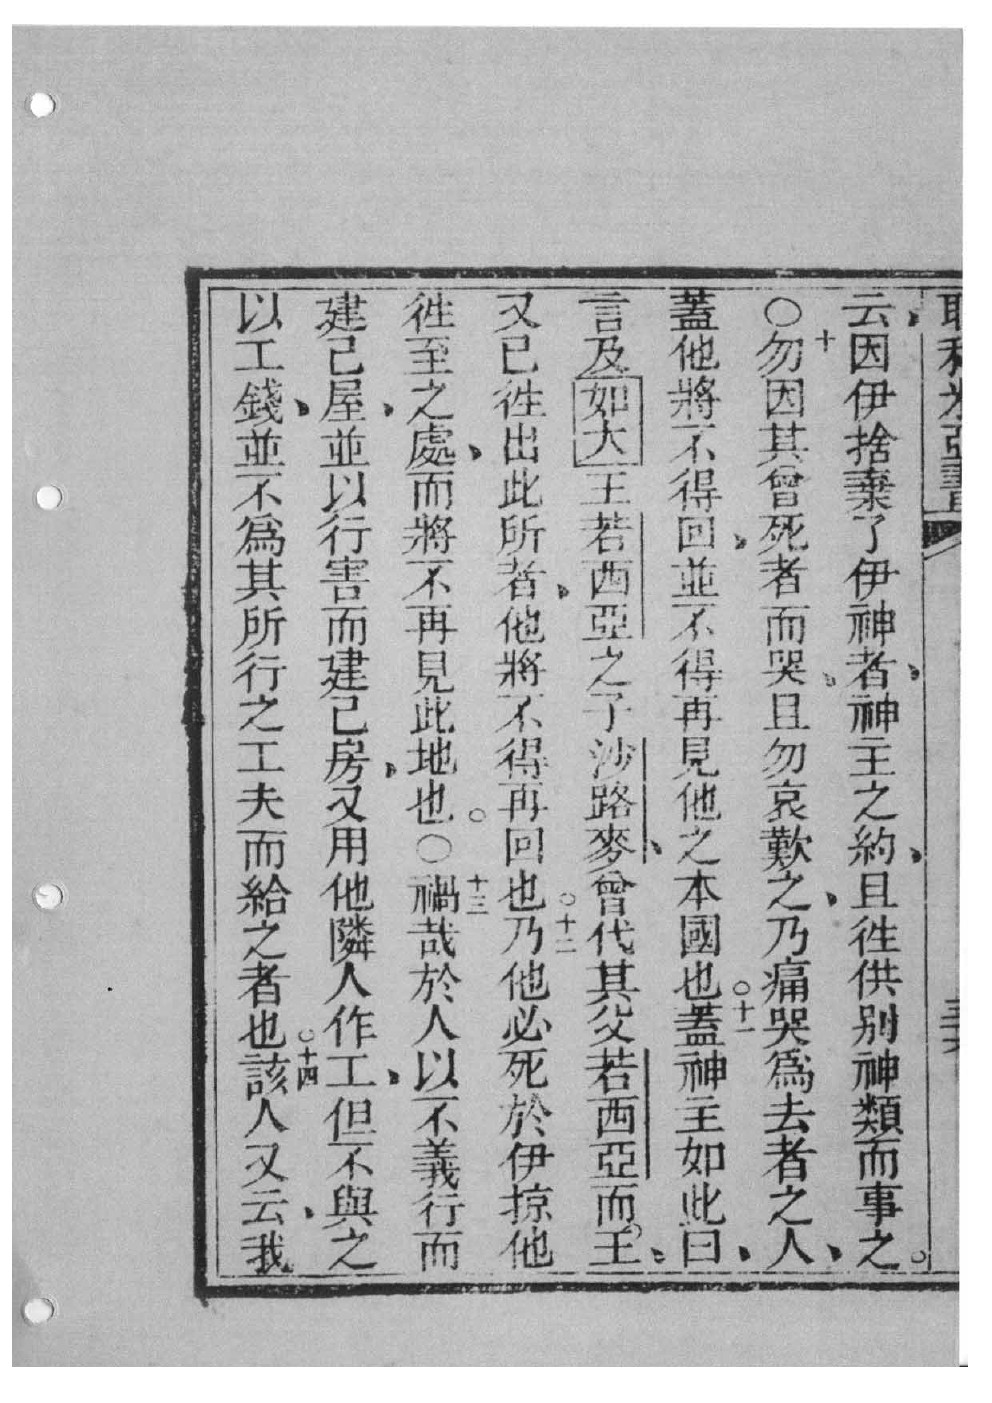 云、因伊捨棄了伊神者、神主之約、且徃供別神類而事之。
○十勿因其曾死者而哭、且勿哀歎之、乃痛哭爲去者之人、
蓋他將不得回、並不得再見他之本國也。十一蓋神主如此曰、
言及如大王若西亞之子沙路麥、曾代其父若西亞而王。
又已徃出此所者、他將不得再回也。十二乃他必死於伊掠他
徃至之處、而將不再見此地也。○十三禍哉於人以不義行而
建己屋、並以行害而建己房、又用他隣人作工、但不與之
以工錢、並不爲其所行之工夫而給之者也。十四該人又云、我